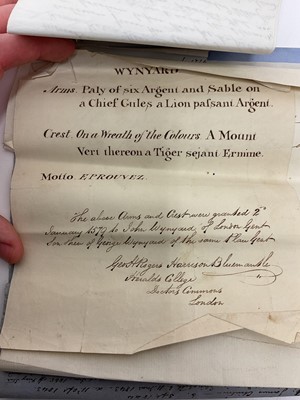 WYNYARD
Arms. Paly of six Argent and Sable on
a Chief Gules a Lion passant Argent.
Crest. On a Wreath of the Colours A Mount
Vert thereon a Tiger sejant Ermine.
Motto EPROUVEZ.
The above Arms and Crest were granted 2d
January 1570 to John Wynyard, of London Gent
Son of George Wynyard of the same place Gent
Geo H Rogers Harrison Bluemantle
Heralds College
Doctors Commons
London